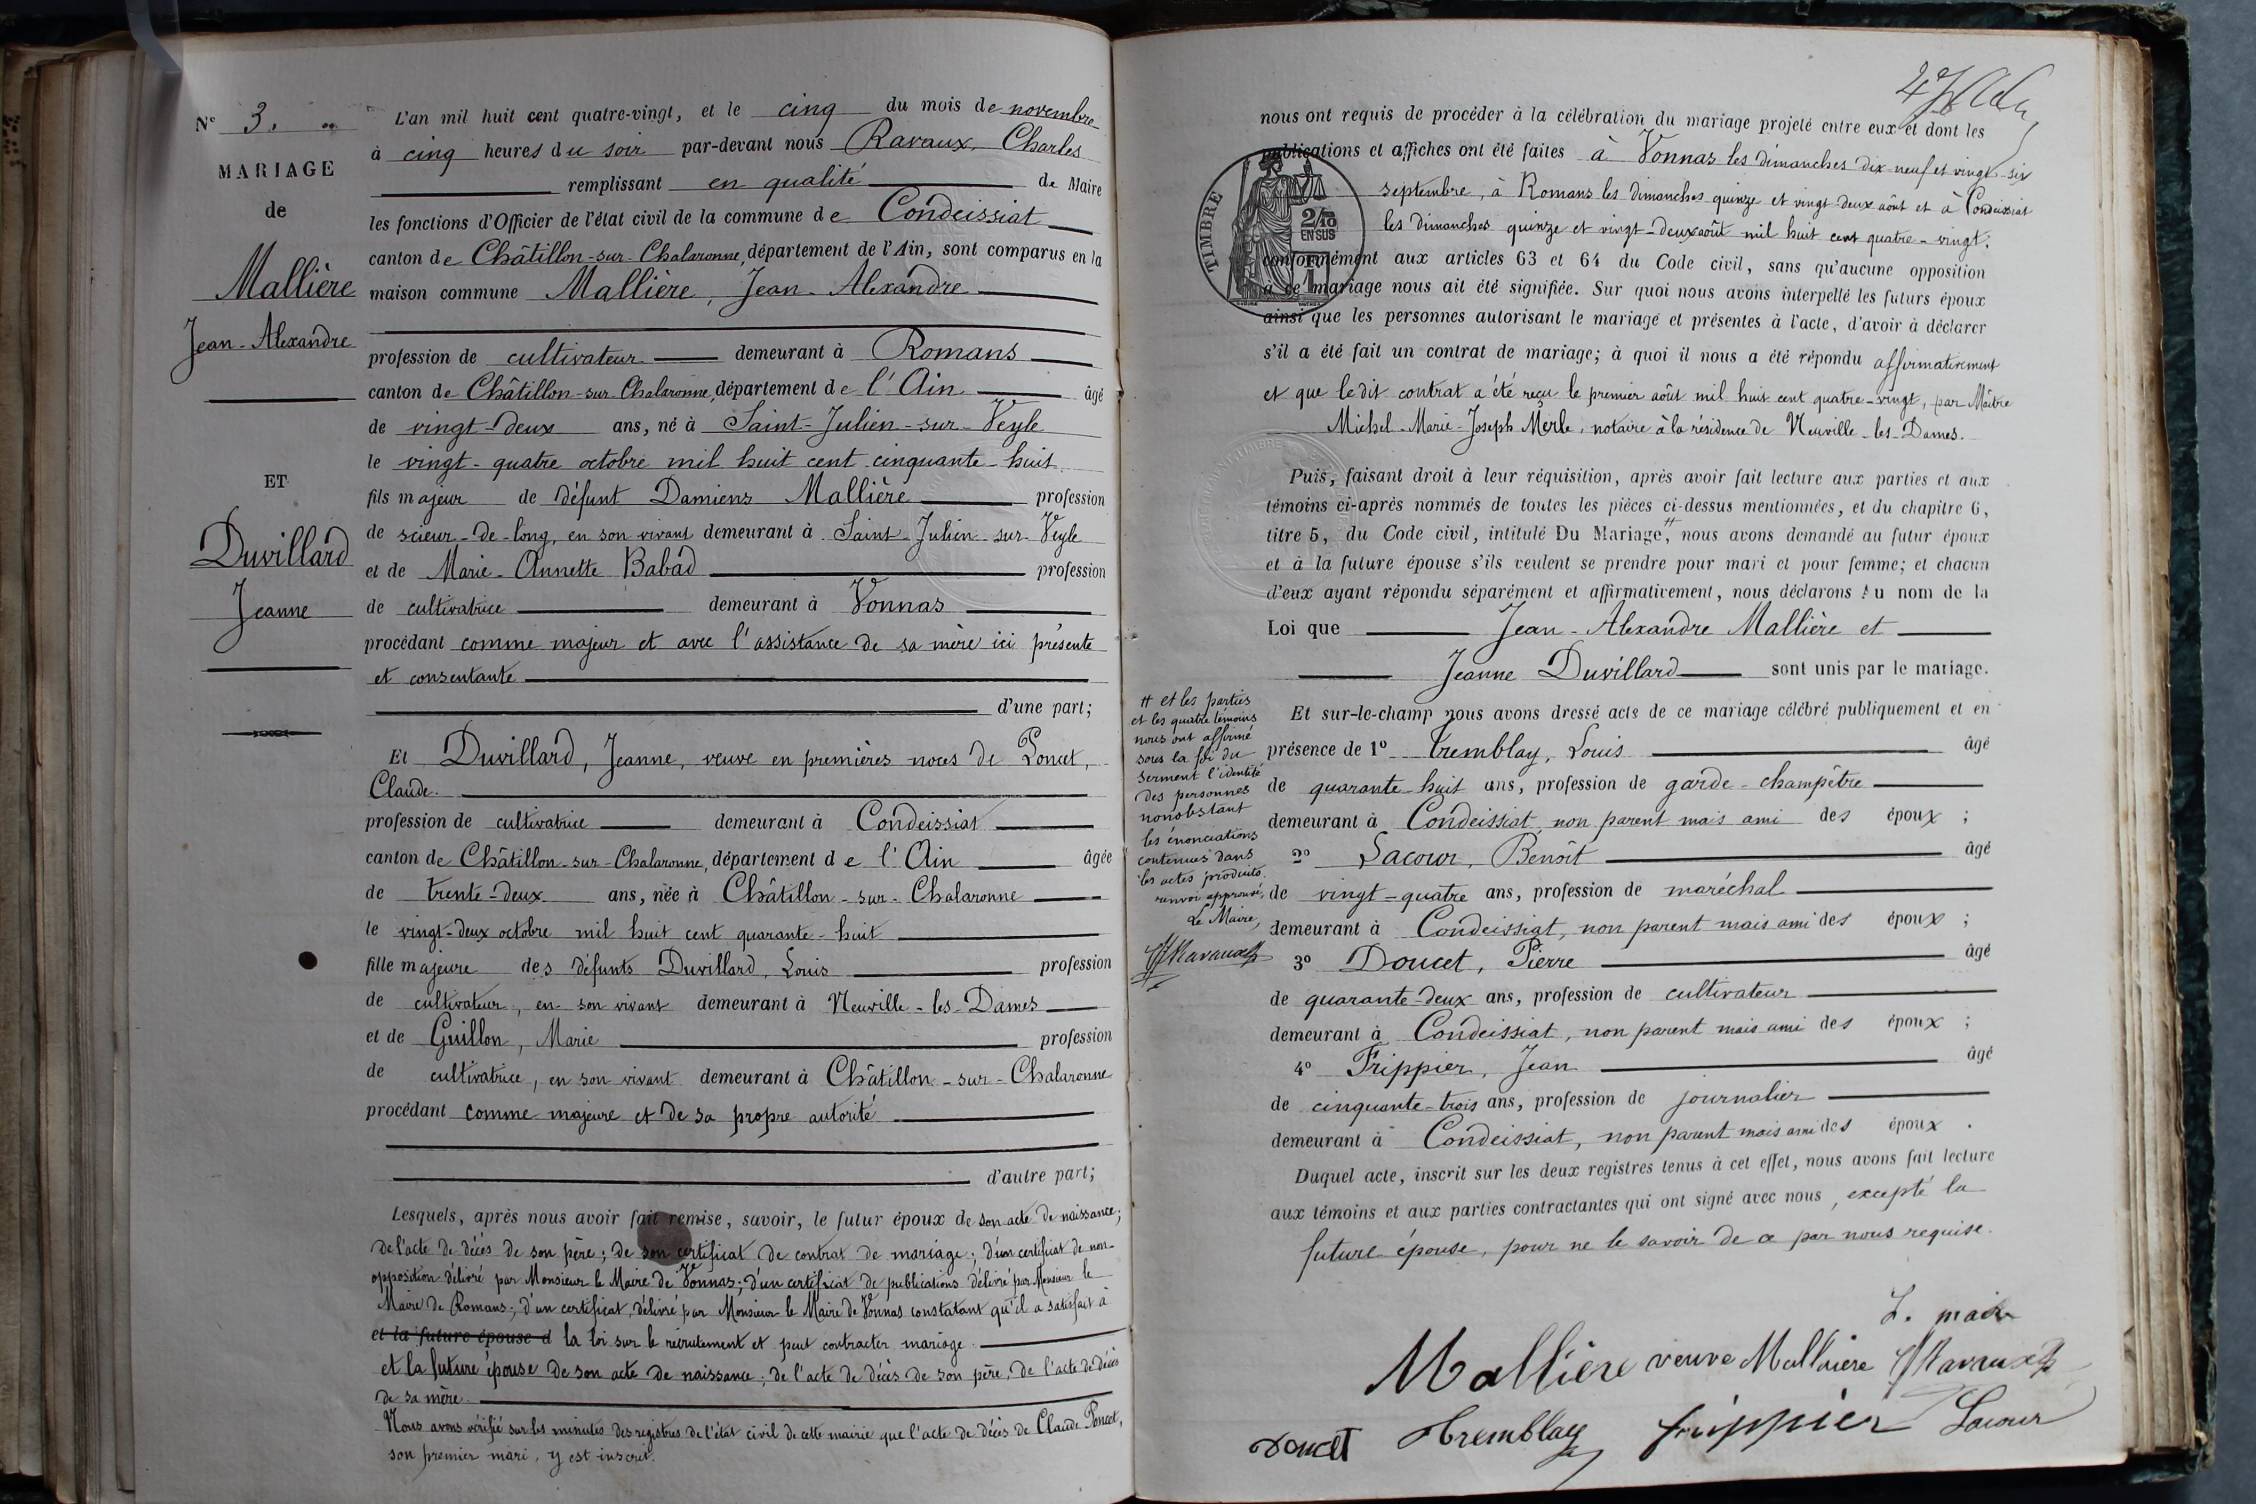 N° 3.
MARIAGE
de
Mallière
Jean-Alexandre
ET
Duvillard
Jeanne
L'an mil huit cent quatre-vingt, et le cinq du mois de novembre
à cinq heures du soir par-devant nous Ravaux, Charles
remplissant en qualité de Maire
les fonctions d'Officier de l'état civil de la commune de Condeissiat
canton de Châtillon-sur-Chalaronne, département de l'Ain, sont comparus en la
maison commune Mallière, Jean-Alexandre
profession de cultivateur demeurant à Romans
canton de Châtillon-sur-Chalaronne, département de l'Ain âgé
de vingt-deux ans, né à Saint-Julien-sur-Veyle
le vingt-quatre octobre mil huit cent cinquante-huit
fils majeur de défunt Damiens Mallière profession
de scieur-de-long, en son vivant demeurant à Saint-Julien-sur-Veyle
et de Marie-Annette Babad profession
de cultivatrice demeurant à Vonnas
procédant comme majeur et avec l'assistance de sa mère ici présente
et consentante
d'une part;
Et Duvillard, Jeanne, veuve en premières noces de Poncet,
Claude.
profession de cultivatrice demeurant à Condeissiat
canton de Châtillon-sur-Chalaronne, département de l'Ain âgée
de trente-deux ans, née à Châtillon-sur-Chalaronne
le vingt-deux octobre mil huit cent quarante-huit
fille majeure des défunts Duvillard, Louis profession
de cultivateur, en son vivant demeurant à Neuville-les-Dames
et de Guillon, Marie profession
de cultivatrice, en son vivant demeurant à Châtillon-sur-Chalaronne
procédant comme majeure et de sa propre autorité
d'autre part;
Lesquels, après nous avoir fait remise, savoir, le futur époux de son acte de naissance;
de l'acte de décès de son père; de son certificat de contrat de mariage; d'un certificat de non-
opposition délivré par Monsieur le Maire de Vonnas; d'un certificat de publications délivré par Monsieur le
Maire de Romans; d'un certificat délivré par Monsieur le Maire de Vonnas constatant qu'il a satisfait à
et la future épouse d la loi sur le recrutement et peut contracter mariage.
et la future épouse de son acte de naissance; de l'acte de décès de son père, de l'acte de décès
de sa mère.
Nous avons vérifié sur les minutes des registres de l'état civil de cette mairie que l'acte de décès de Claude Poncet,
son premier mari, y est inscrit.
nous ont requis de procéder à la célébration du mariage projeté entre eux et dont les
publications et affiches ont été faites à Vonnas les dimanches dix-neuf et vingt-six
septembre, à Romans les dimanches quinze et vingt-deux août et à Condeissiat
les dimanches quinze et vingt-deux août mil huit cent quatre-vingt.
TIMBRE
2/10
EN SUS
1
conformément aux articles 63 et 64 du Code civil, sans qu'aucune opposition
à ce mariage nous ait été signifiée. Sur quoi nous avons interpellé les futurs époux
ainsi que les personnes autorisant le mariage et présentes à l'acte, d'avoir à déclarer
s'il a été fait un contrat de mariage; à quoi il nous a été répondu affirmativement
et que le dit contrat a été reçu le premier août mil huit cent quatre-vingt, par Maître
Michel-Marie-Joseph Merle, notaire à la résidence de Neuville-les-Dames.
Puis, faisant droit à leur réquisition, après avoir fait lecture aux parties et aux
témoins ci-après nommés de toutes les pièces ci-dessus mentionnées, et du chapitre 6,
titre 5, du Code civil, intitulé Du Mariage, # nous avons demandé au futur époux
et à la future épouse s'ils veulent se prendre pour mari et pour femme; et chacun
d'eux ayant répondu séparément et affirmativement, nous déclarons Au nom de la
Loi que Jean-Alexandre Mallière et
Jeanne Duvillard sont unis par le mariage.
# et les parties
et les quatre témoins
nous ont affirmé
sous la foi du
serment l'identité
des personnes
nonobstant
les énonciations
contenues dans
les actes produits.
renvoi approuvé,
Le Maire,
Ravaux
Et sur-le-champ nous avons dressé acte de ce mariage célébré publiquement et en
présence de 1° Tremblay, Louis âgé
de quarante-huit ans, profession de garde-champêtre
demeurant à Condeissiat, non parent mais ami des époux;
2° Lacour, Benoît âgé
de vingt-quatre ans, profession de maréchal
demeurant à Condeissiat, non parent mais ami des époux;
3° Doucet, Pierre âgé
de quarante-deux ans, profession de cultivateur
demeurant à Condeissiat, non parent mais ami des époux;
4° Frippier, Jean âgé
de cinquante-trois ans, profession de journalier
demeurant à Condeissiat, non parent mais ami des époux.
Duquel acte, inscrit sur les deux registres tenus à cet effet, nous avons fait lecture
aux témoins et aux parties contractantes qui ont signé avec nous, excepté la
future épouse, pour ne le savoir de ce par nous requise.
Mallière veuve Mallaiere Ravaux
Doucet Tremblay frippier Lacour